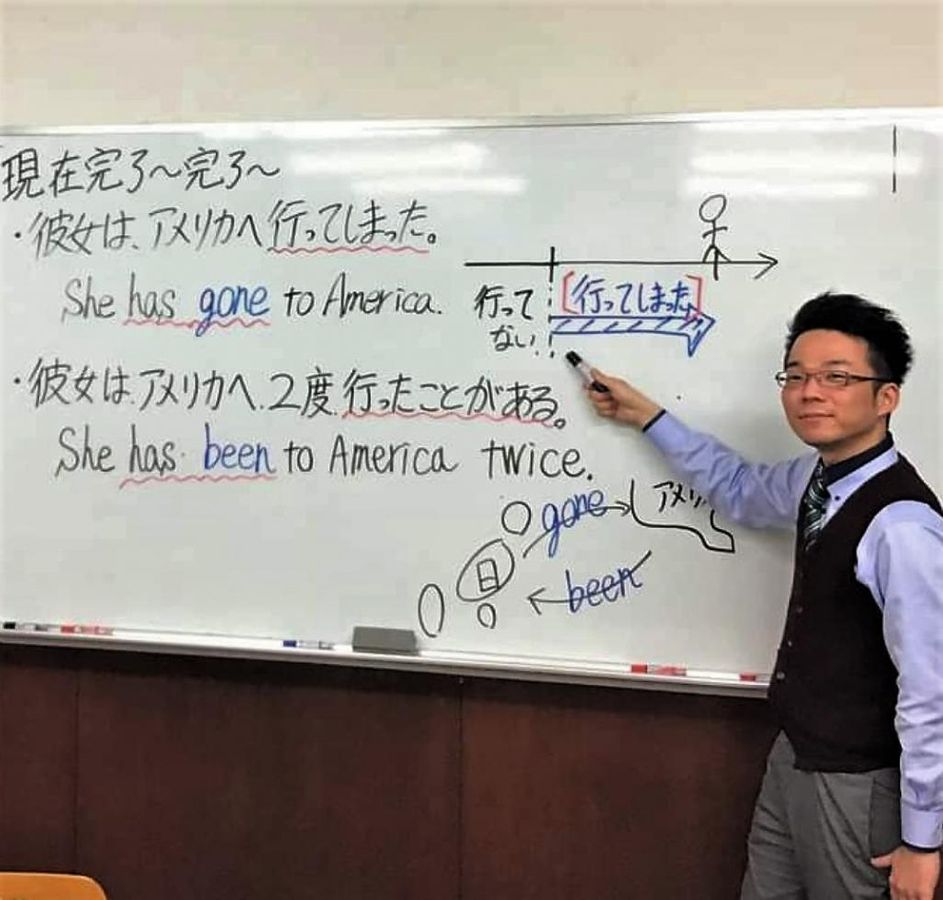 現在完了～完了～
・彼女は、アメリカへ行ってしまった。
She has gone to America.
行って
ない
[行ってしまった]
・彼女は、アメリカへ、2度行ったことがある。
She has been to America twice.
gone
アメリ
日
been